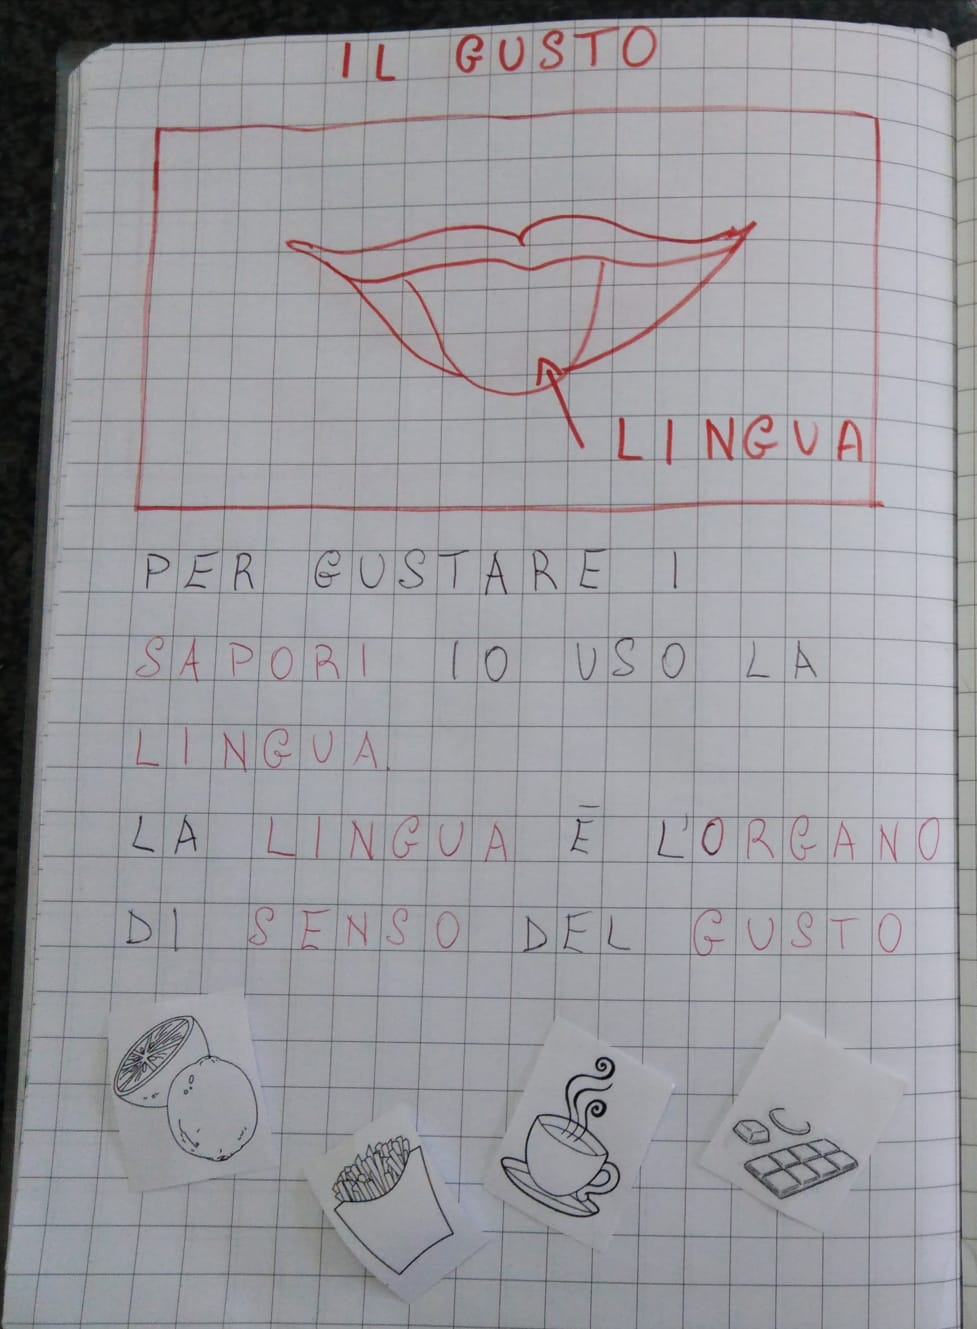 IL GUSTO
LINGUA
PER GUSTARE I
SAPORI IO USO LA
LINGUA.
LA LINGUA Ē L'ORGANO
DI SENSO DEL GUSTO